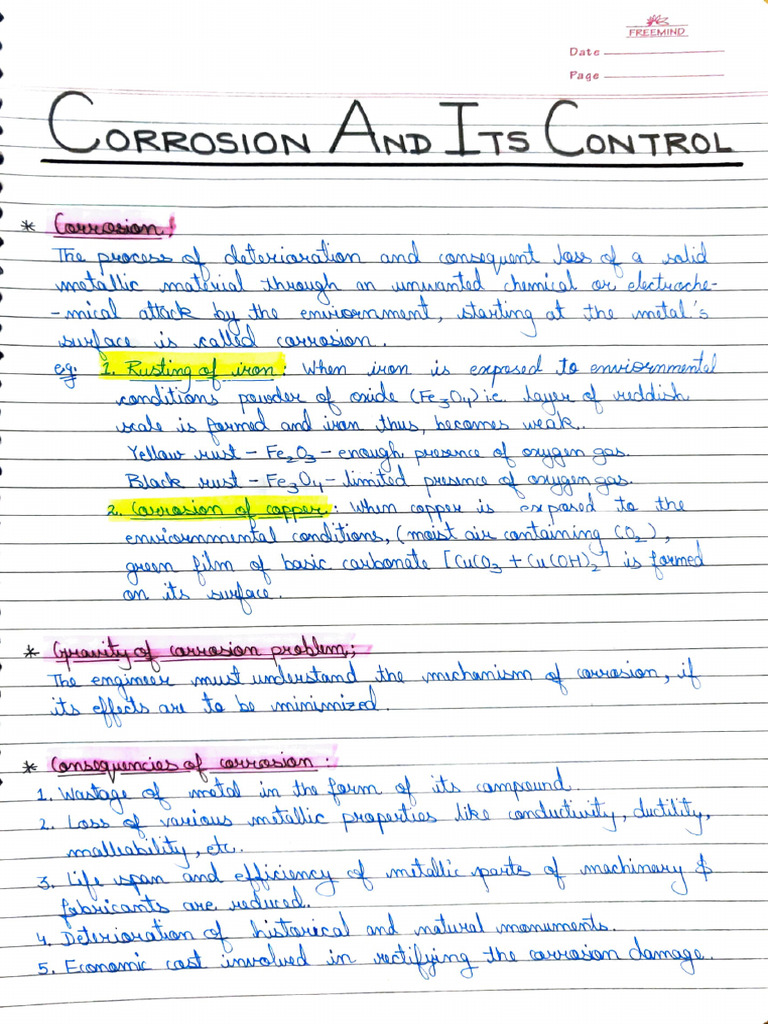 FREEMIND
Date
Page
CORROSION AND ITS CONTROL
* Corrosion:
The process of deterioration and consequent loss of a solid
metallic material through an unwanted chemical or electroche-
-mical attack by the enviornment, starting at the metal's
surface is called corrosion.
eg: 1. Rusting of iron: When iron is exposed to enviornmental
conditions powder of oxide (Fe3O4) i.e. layer of reddish
scale is formed and iron thus, becomes weak.
Yellow rust - Fe2O3 - enough presence of oxygen gas.
Black rust - Fe3O4 - limited presence of oxygen gas.
2. Corrosion of copper: When copper is exposed to the
enviornmental conditions, (moist air containing CO2),
green film of basic carbonate [CuCO3 + Cu(OH)2] is formed
on its surface.
* Gravity of corrosion problem:
The engineer must understand the mechanism of corrosion, if
its effects are to be minimized.
* Consequencies of corrosion:
1. Wastage of metal in the form of its compound.
2. Loss of various metallic properties like conductivity, ductility,
malleability, etc.
3. Life span and efficiency of metallic parts of machinary &
fabricants are reduced.
4. Deterioration of historical and natural monuments.
5. Economic cost involved in rectifying the corrosion damage.